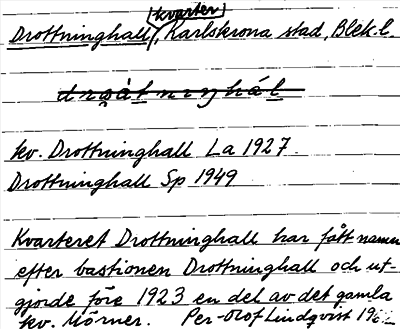 (kvarter)
Drottninghall, Karlskrona stad, Blek.l.
kv. Drottninghall La 1927.
Drottninghall Sp 1949
Kvarteret Drottninghall har fått namn
efter bastionen Drottninghall och ut-
gjorde före 1923 en del av det gamla
kv. Mörner. Per-Olof Lindqvist